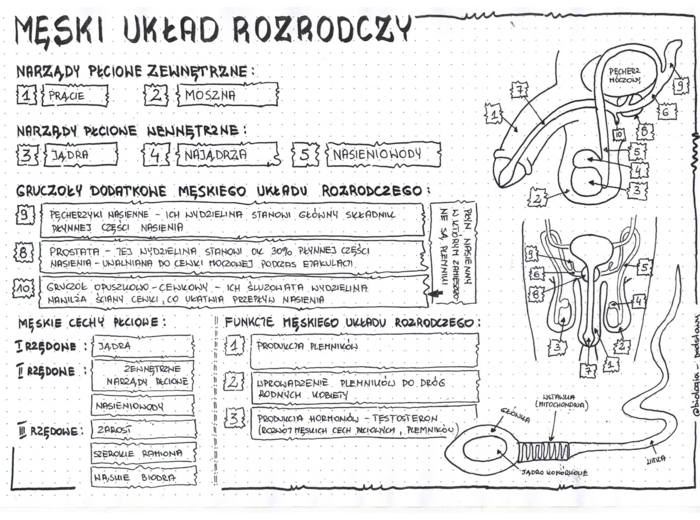 MĘSKI UKŁAD ROZRODCZY
NARZĄDY PŁCIOWE ZEWNĘTRZNE:
1 PRĄCIE 2 MOSZNA
NARZĄDY PŁCIOWE WEWNĘTRZNE:
3 JĄDRA 4 NAJĄDRZA 5 NASIENIOWODY
GRUCZOŁY DODATKOWE MĘSKIEGO UKŁADU ROZRODCZEGO:
9 PĘCHERZYKI NASIENNE - ICH WYDZIELINA STANOWI GŁÓWNY SKŁADNIK
PŁYNNEJ CZĘŚCI NASIENIA
8 PROSTATA - JEJ WYDZIELINA STANOWI OK 30% PŁYNNEJ CZĘŚCI
NASIENIA - UWALNIANA DO CEWKI MOCZOWEJ PODCZAS EJAKULACJI
10 GRUCZOŁ OPUSZKOWO - CEWKOWY - ICH ŚLUZOWATA WYDZIELINA
NAWILŻA ŚCIANY CEWKI, CO UŁATWIA PRZEPŁYW NASIENIA
PŁYN NASIENNY
W KTÓRYM
NIE SĄ PLEMNIKI
MĘSKIE CECHY PŁCIOWE:
I RZĘDOWE: JĄDRA
II RZĘDOWE: ZEWNĘTRZNE
NARZĄDY PŁCIOWE
NASIENIOWODY
III RZĘDOWE: ZAROST
SZEROKIE RAMIONA
WĄSKIE BIODRA
FUNKCJE MĘSKIEGO UKŁADU ROZRODCZEGO:
1 PRODUKCJA PLEMNIKÓW
2 WPROWADZENIE PLEMNIKÓW DO DRÓG
RODNYCH KOBIETY
3 PRODUKCJA HORMONÓW - TESTOSTERON
(ROZWÓJ MĘSKICH CECH PŁCIOWYCH, PLEMNIKÓW)
PĘCHERZ
MOCZOWY
1
7
9
6
8
10
5
4
3
2
9
6
8
5
4
3
2
1
7
GŁÓWKA
WSTAWKA
(MITOCHONDRIA)
JĄDRO KOMÓRKOWE
WITKA